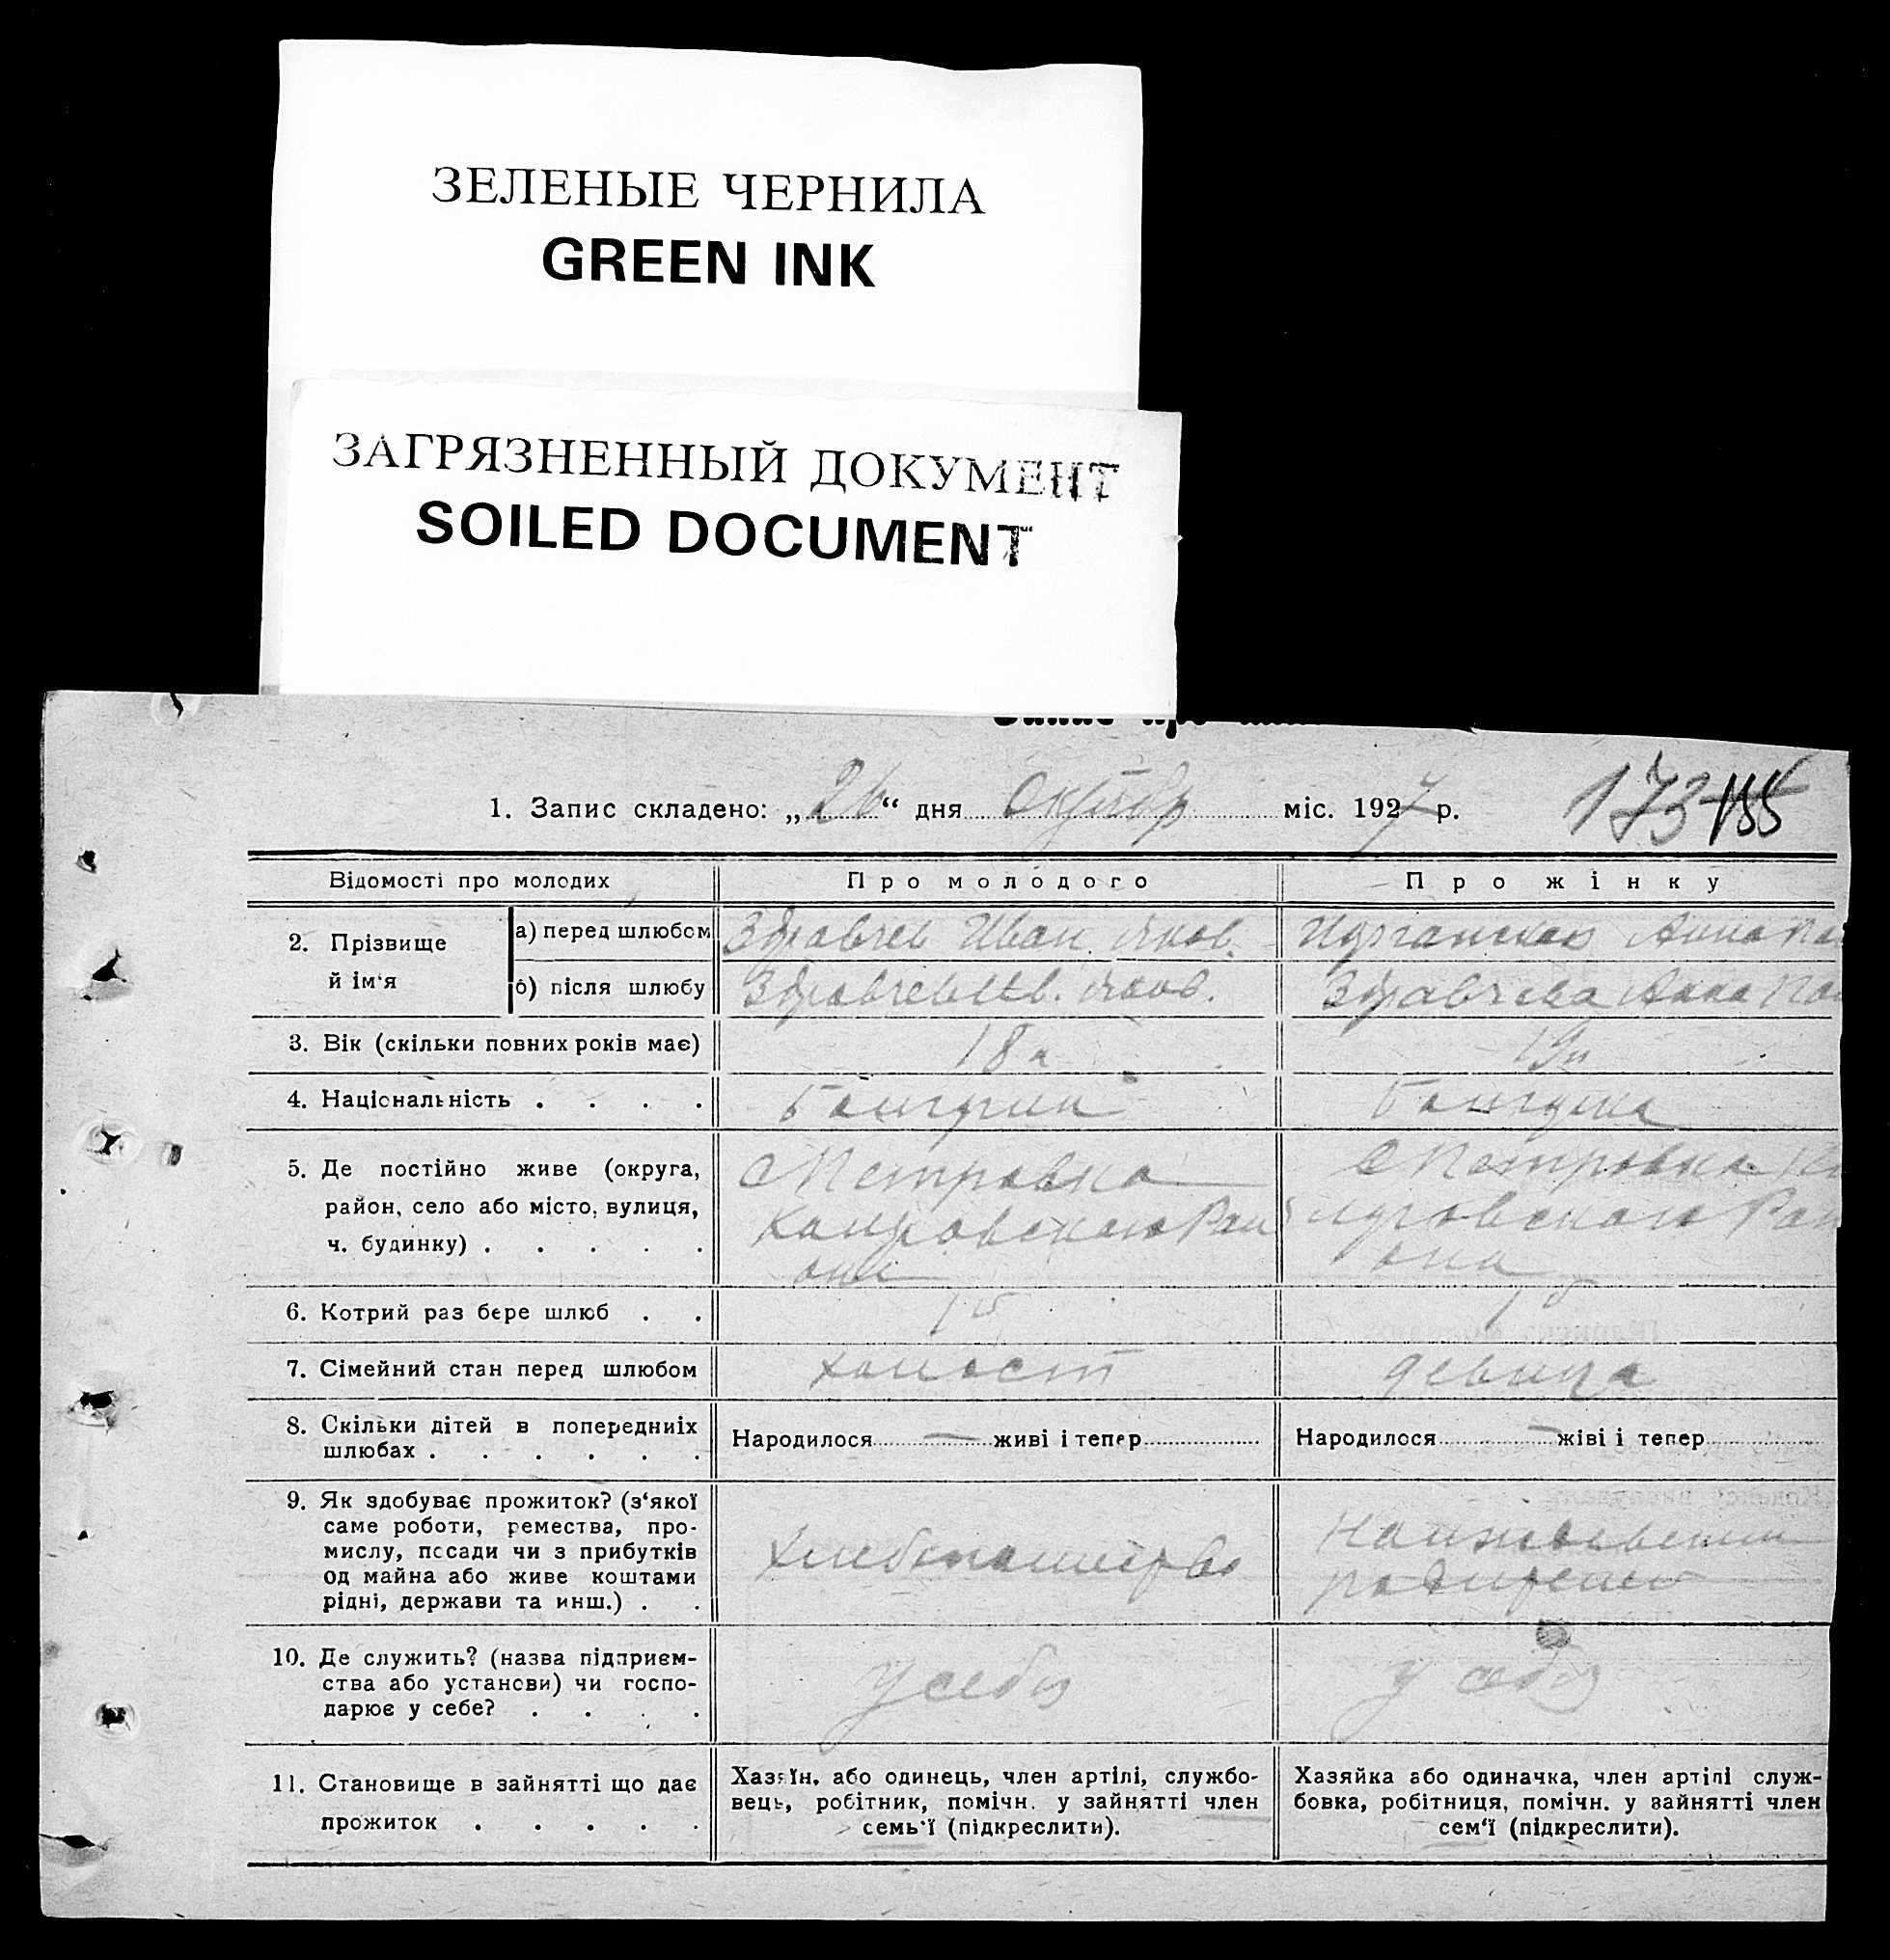 ЗЕЛЕНЫЕ ЧЕРНИЛА
GREEN INK
ЗАГРЯЗНЕННЫЙ ДОКУМЕНТ
SOILED DOCUMENT
1. Запис складено: „26“ дня Октябр міс. 1927 р. 173 155
Відомості про молодих Про молодого Про жінку
2. Прізвище й ім‘я
а) перед шлюбом Здравчев Иван Яков. Анна
б) після шлюбу Здравчев Ив. Яков. Здравчева Анна
3. Вік (скільки повних років має) 18 19
4. Національність . . . . Болгарин Болгарка
5. Де постійно живе (округа, С Петровка С Петровка
район, село або місто, вулиця,
ч. будинку) . . . . .
6. Котрий раз бере шлюб . . 1й 1й
7. Сімейний стан перед шлюбом холост девица
8. Скільки дітей в попередниіх
шлюбах . . . . . . Народилося — живі і тепер Народилося — жіві і тепер
9. Як здобуває прожиток? (з‘якої
саме роботи, ремества, про-
мислу, посади чи з прибутків
од майна або живе коштами
рідні, держави та инш.) . . Хлебопашество
10. Де служить? (назва підприєм-
ства або установи) чи госпо-
дарює у себе? . . . . у себя у себя
11. Становище в зайнятті що дає
прожиток . . . . .
Хазяїн, або одинець, член артілі, службо-
вець, робітник, помічн. у зайнятті член
семь‘ї (підкреслити).
Хазяйка або одиначка, член артілі служ-
бовка, робітниця, помічн. у зайнятті член
сем‘ї (підкреслити).